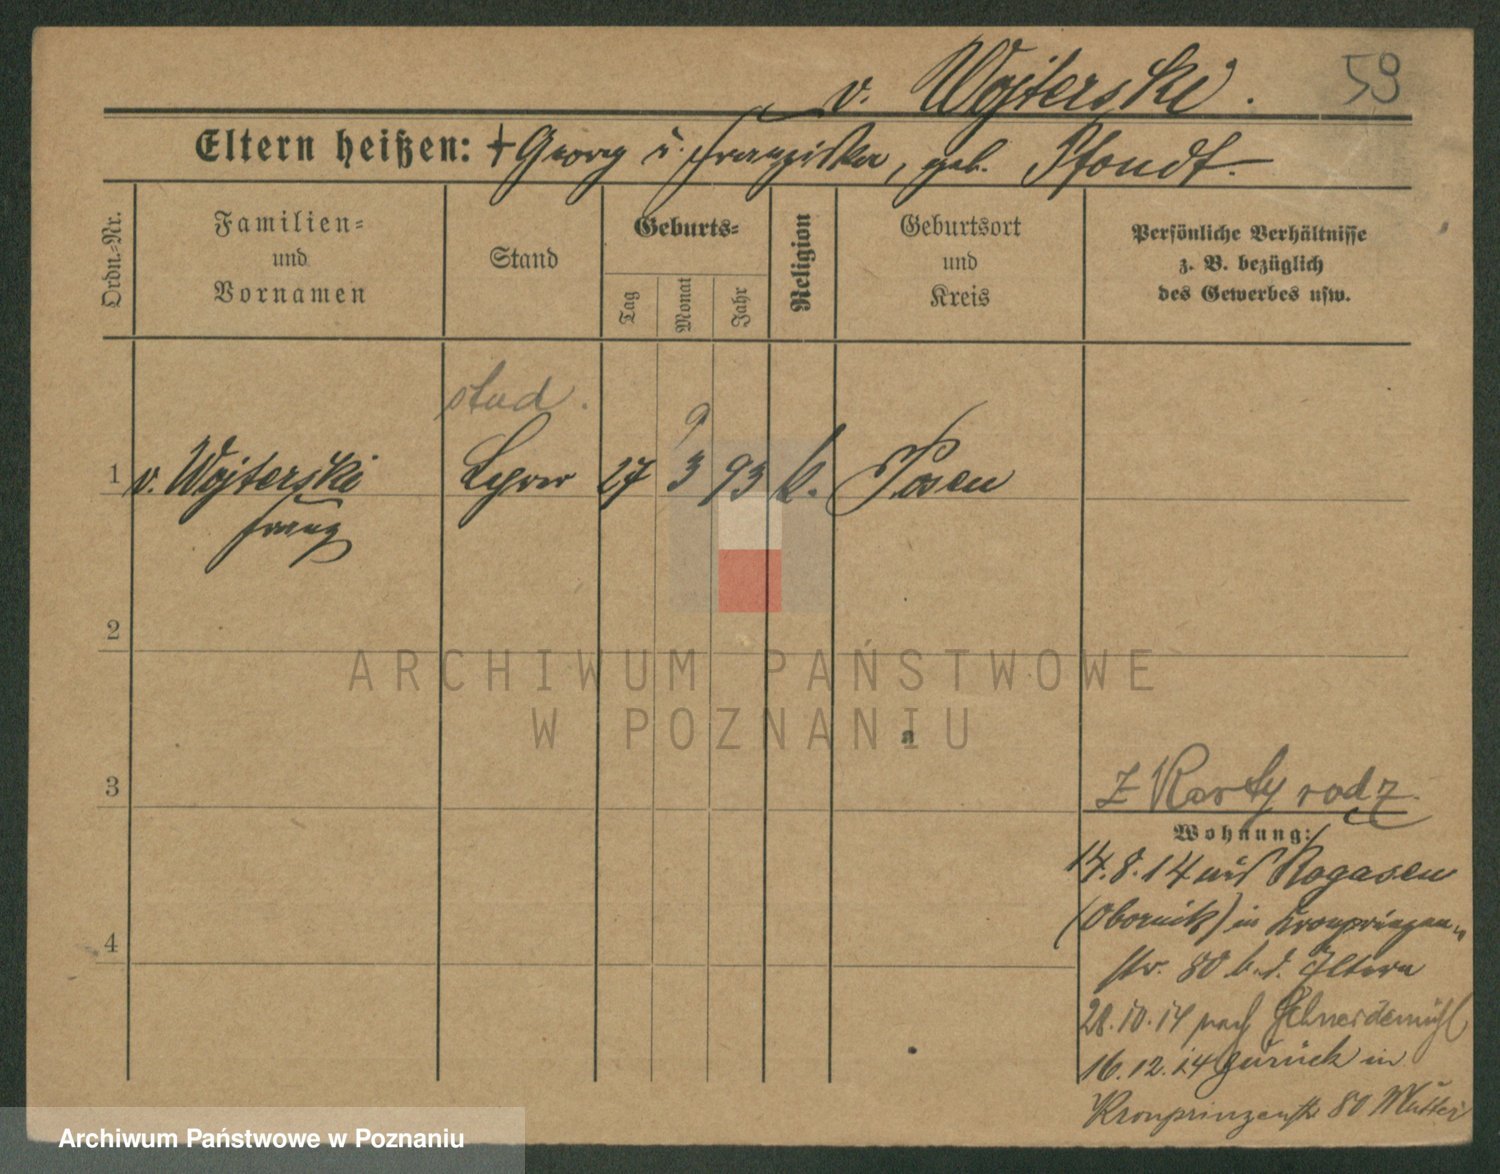 v. Wojterski. 59
Eltern heißen: + Georg u. Franziska, geb. Pfondt.
Ordn.-Nr.
Familien-
und
Vornamen
Stand
Geburts-
Tag
Monat
Jahr
Religion
Geburtsort
und
Kreis
Persönliche Verhältnisse
z. B. bezüglich
des Gewerbes usw.
stud.
9
1 v. Wojterski Lehrer 27 3 93 k. Posen
Franz
2
ARCHIWUM PAŃSTWOWE
W POZNANIU
3
Z Karty rodz.
Wohnung:
14.8.14 aus Rogasen
(Obornik) in Kronprinzen-
str. 80 b. d. Eltern
4
28.10.14 nach Schneidemühl
16.12.14 zurück in
Kronprinzenstr 80 Mutter
Archiwum Państwowe w Poznaniu